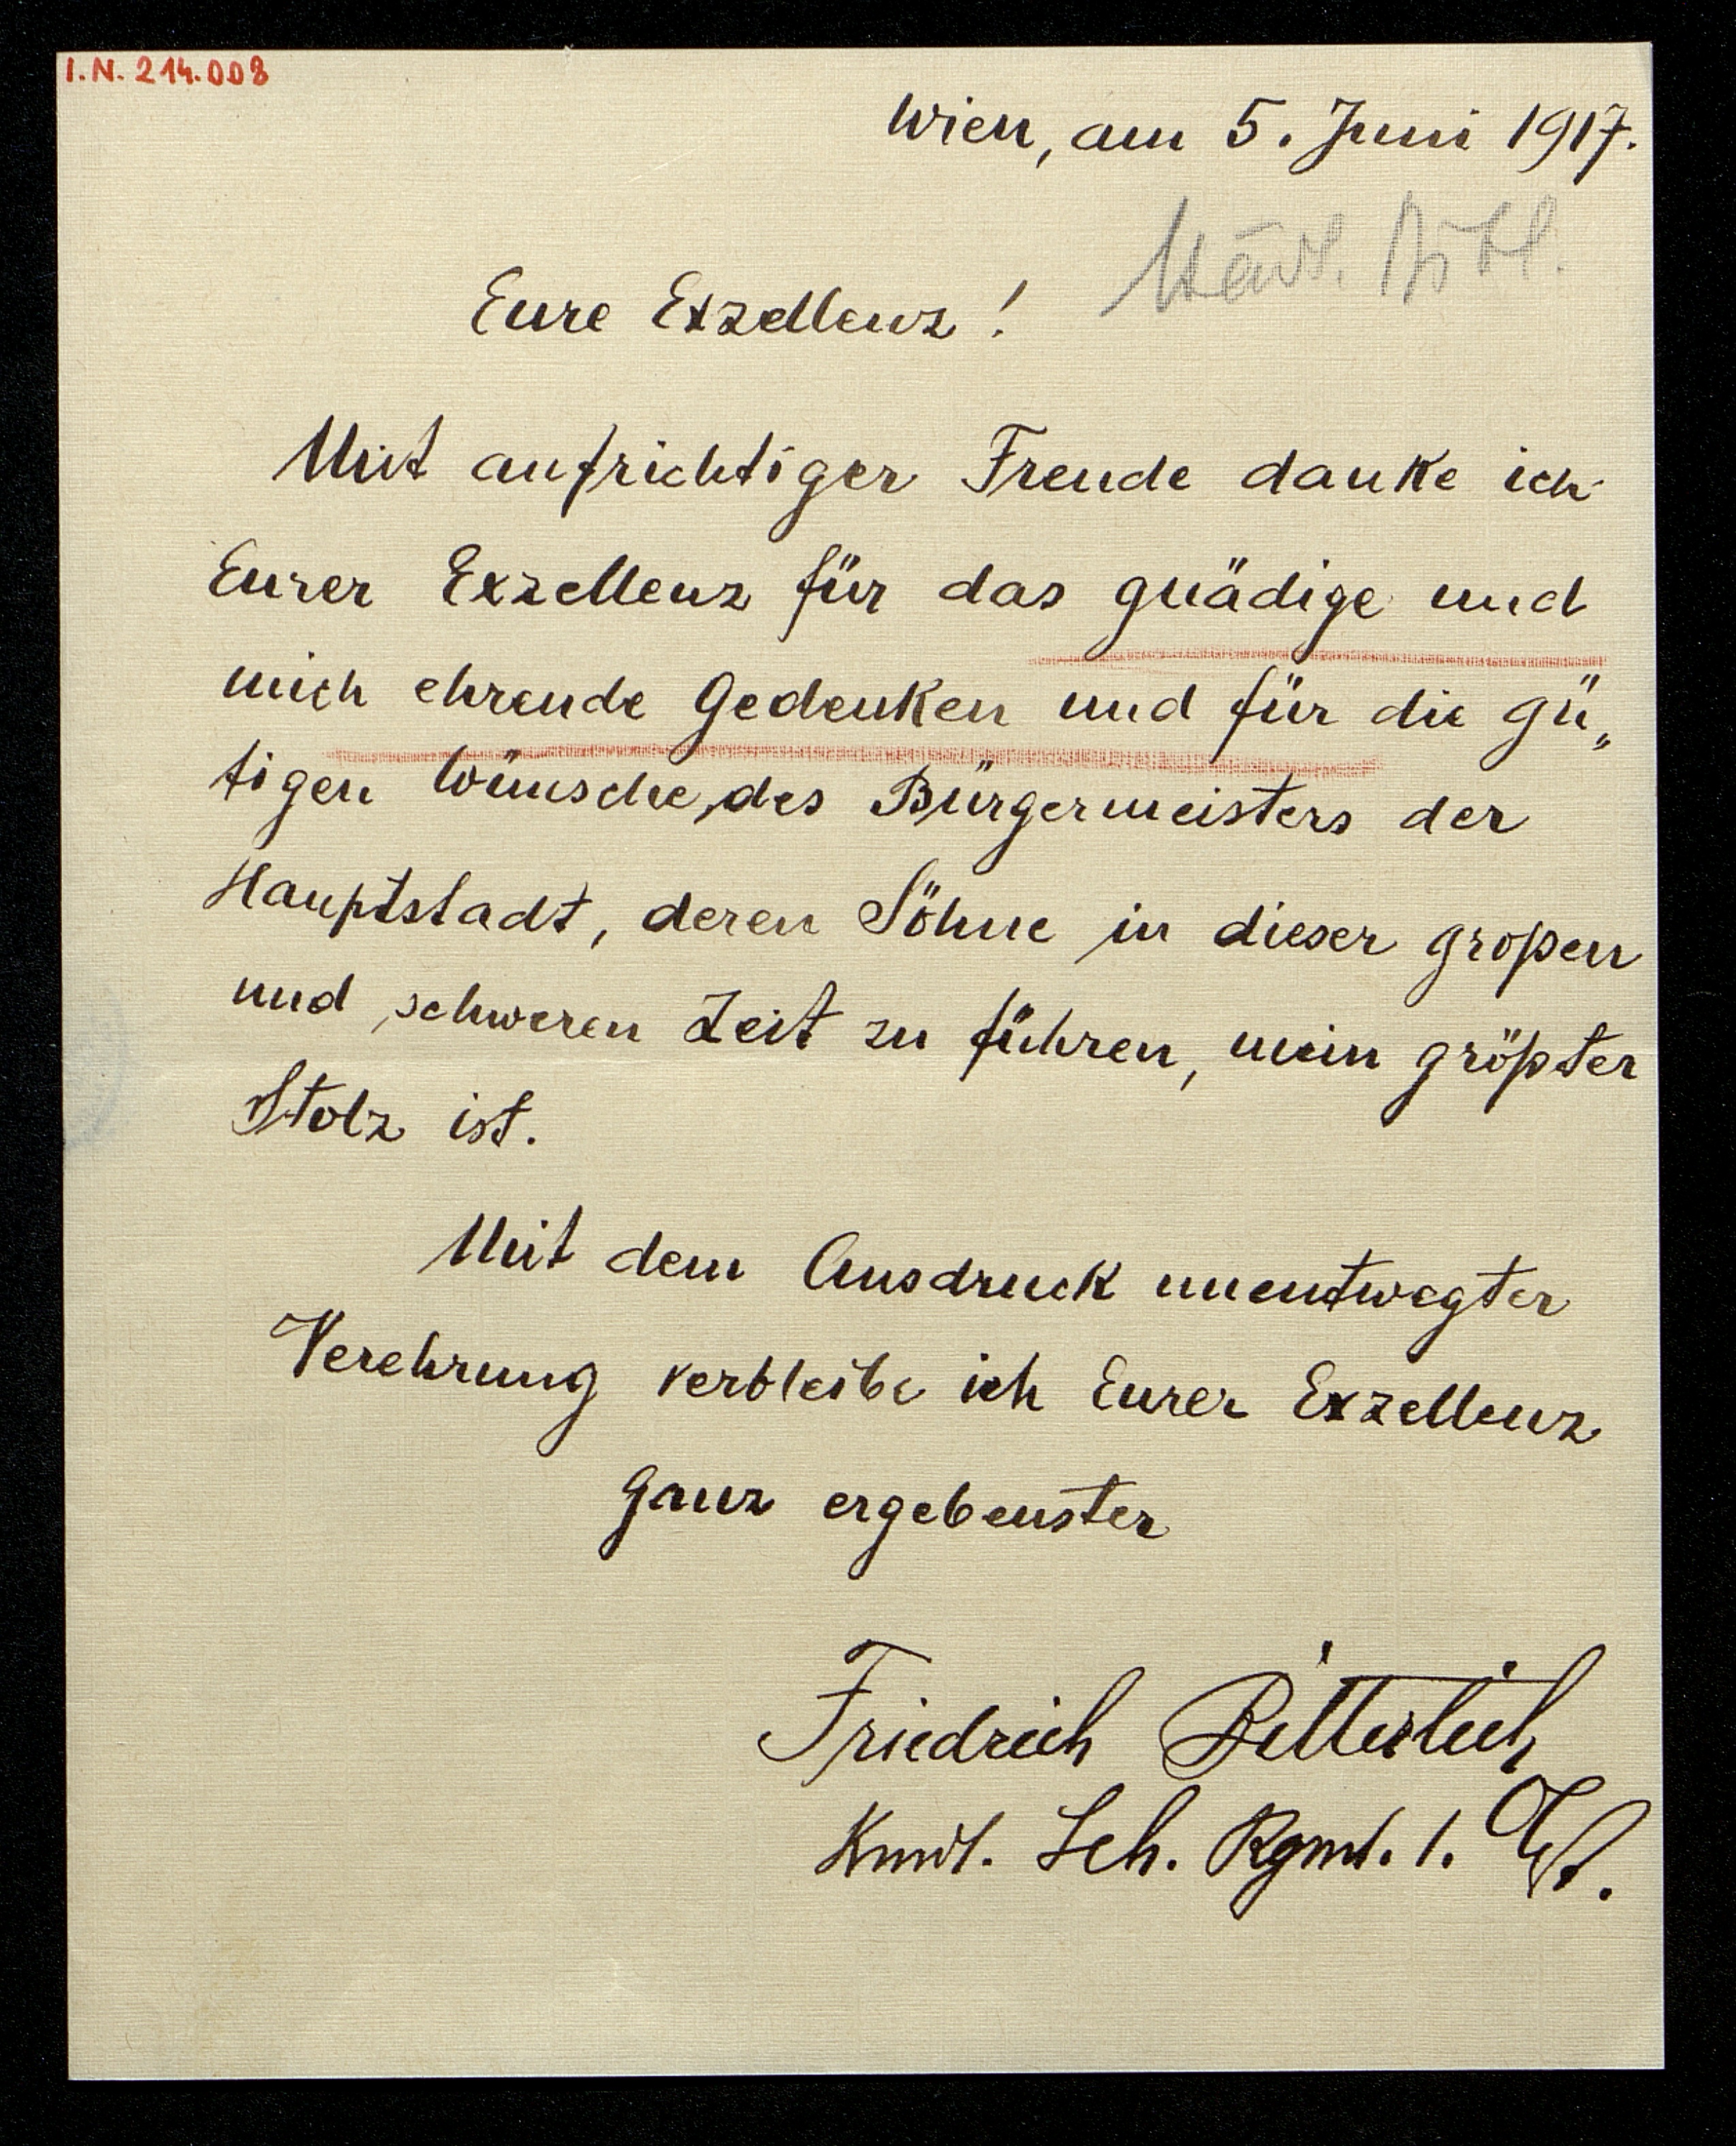 I.N. 214.008
Wien, am 5. Juni 1917.
Städt. Bibl.
Eure Exzellenz!
Mit aufrichtiger Freude danke ich
Eurer Exzellenz für das gnädige und
mich ehrende Gedenken und für die gü„
tigen Wünsche des Bürgermeisters der
Hauptstadt, deren Söhne in dieser großen
und schweren Zeit zu führen, mein größter
Stolz ist.
Mit dem Ausdruck unentwegter
Verehrung verbleibe ich Eurer Exzellenz
ganz ergebenster
Friedrich Bitterlich
Kmdt. Sch. Rgmt. 1. Obst.